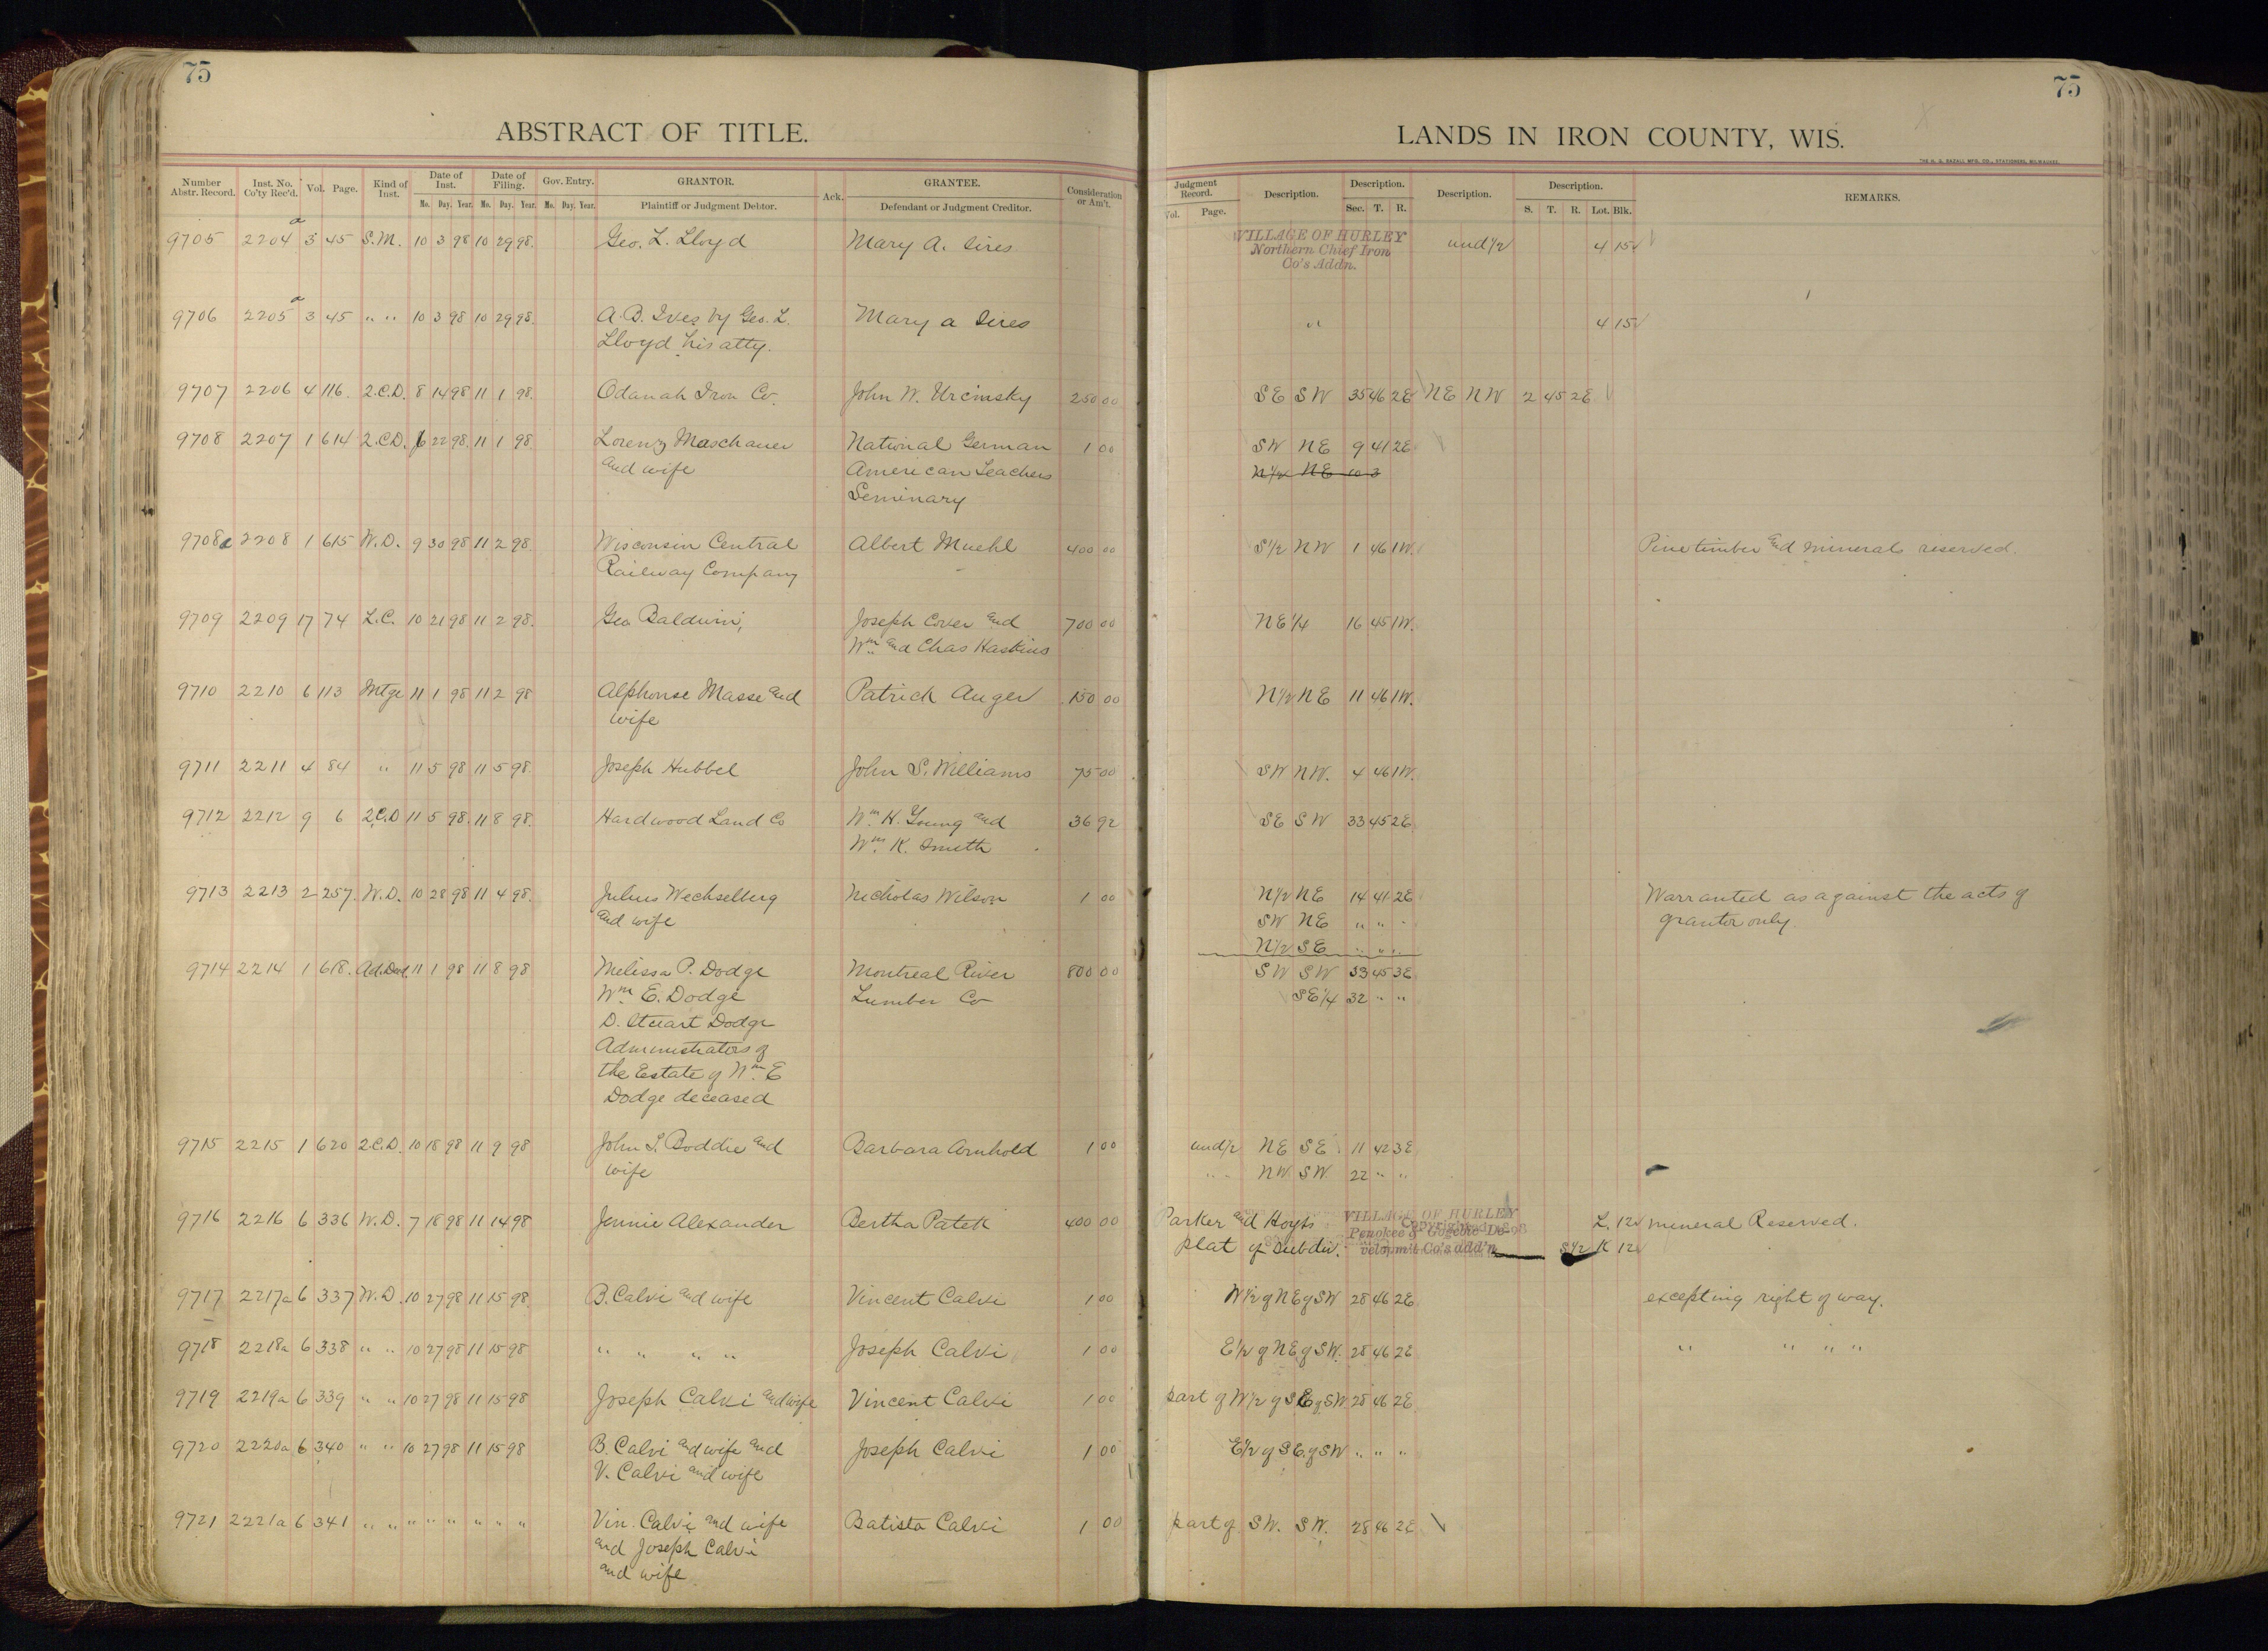 75
ABSTRACT OF TITLE.
Number Abstr. Record. Inst. No. Co'ty Rec'd. Vol. Page. Kind of Inst. Date of Inst. Mo. Day. Year. Date of Filing. Mo. Day. Year. Gov. Entry. Mo. Day. Year. GRANTOR. Plaintiff or Judgment Debtor. Ack. GRANTEE. Defendant or Judgment Creditor. Consideration or Am't.
9705 2204a 3 45 S.M. 10 3 98 10 29 98. Geo. L. Lloyd Mary A. Sires
9706 2205a 3 45 " " 10 3 98 10 29 98. A. B. Ives by Geo. L. Mary A Sires
Lloyd his atty.
9707 2206 4 116. 2.C.D. 8 14 98 11 1 98. Odanah Iron Co. John W. 250 00
9708 2207 1 614 2.C.D. 6 22 98. 11 1 98. Lorenz Maschauer National German 1 00
and wife American Teachers
Seminary
9708a 2208 1 615 W.D. 9 30 98 11 2 98. Wisconsin Central Albert Muehl 400 00
Railway Company
9709 2209 17 74 L.C. 10 21 98 11 2 98. Geo Baldwin, Joseph Cover and 700 00
Wm and Chas Haskins
9710 2210 6 113 Mtge 11 1 98 11 2 98 Alphonse Masse and Patrick Auger 150 00
wife
9711 2211 4 84 " 11 5 98 11 5 98. Joseph Hubbel John S. Williams 75 00
9712 2212 9 6 2.C.D 11 5 98. 11 8 98. Hardwood Land Co Wm H. Young and 36 92
Wm K. Smith
9713 2213 2 257. W.D. 10 28 98 11 4 98. Julius Wechselberg Nicholas Wilson 1 00
and wife
9714 2214 1 618. Ad.Deed 11 1 98 11 8 98 Melissa P. Dodge Montreal River 800 00
Wm E. Dodge Lumber Co
D. Stuart Dodge
Administrators of
the Estate of Wm E
Dodge deceased
9715 2215 1 620 2.C.D. 10 18 98 11 9 98 John S. Boddie and Barbara Arnhold 1 00
wife
9716 2216 6 336 W.D. 7 18 98 11 14 98 Jennie Alexander Bertha Patek 400 00
9717 2217a 6 337 W.D. 10 27 98 11 15 98 B. Calvi and wife Vincent Calvi 1 00
9718 2218a 6 338 " " 10 27 98 11 15 98 " " " " Joseph Calvi 1 00
9719 2219a 6 339 " " 10 27 98 11 15 98 Joseph Calvi and wife Vincent Calvi 1 00
9720 2220a 6 340 " " 10 27 98 11 15 98 B. Calvi and wife and Joseph Calvi 1 00
V. Calvi and wife
9721 2221a 6 341 " " " " " " " " Vin. Calvi and wife Batista Calvi 1 00
and Joseph Calvi
and wife
75
LANDS IN IRON COUNTY, WIS.
Judgment Record. Vol. Page. Description. Description. Sec. T. R. Description. Description. S. T. R. Lot. Blk. REMARKS.
VILLAGE OF HURLEY und 1/2 4 15
Northern Chief Iron
Co's Add'n.
" 4 15
SE SW 35 46 2E NE NW 2 45 2E
SW NE 9 41 2E
N1/2 NE 10 3
S1/2 NW 1 46 1W. Pine timber and minerals reserved.
NE 1/4 16 45 1W.
N1/2 NE 11 46 1W.
SW NW. 4 46 1W.
SE SW 33 45 2E
N1/2 NE 14 41 2E Warranted as against the acts of
SW NE " " " grantor only.
N1/2 SE " " "
SW SW 33 45 3E
SE 1/4 32 " "
und 1/2 NE SE 11 42 3E
" " NW. SW. 22 " "
Parker and Hoyts VILLAGE OF HURLEY L. 12 Mineral Reserved.
plat of Subdiv. Penokee & Gogebic De-
velopm't Co's add'n S1/2 K 12
W1/2 of NE of SW 28 46 2E excepting right of way.
E1/2 of NE of SW. 28 46 2E " " " "
part of W1/2 of SE of SW. 28 46 2E
E1/2 of SE. of SW " " "
part of SW. SW. 28 46 2E